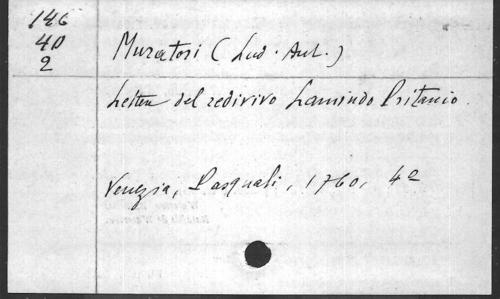 146
40
2
Muratori (Lud. Ant.)
Lettera del redivivo Lamindo Pritanio.
Venezia, Pasquali, 1760, 4º